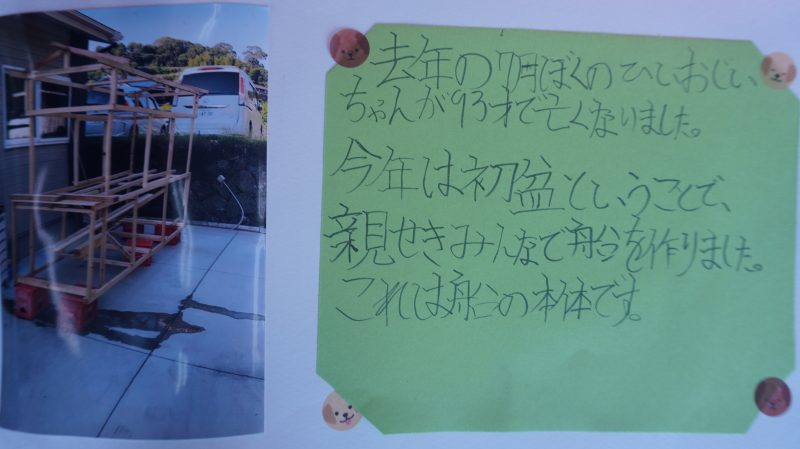 去年の7月ぼくのひいおじい
ちゃんが93才で亡くなりました。
今年は初盆ということで、
親せきみんなで船台を作りました。
これは船台の本体です。